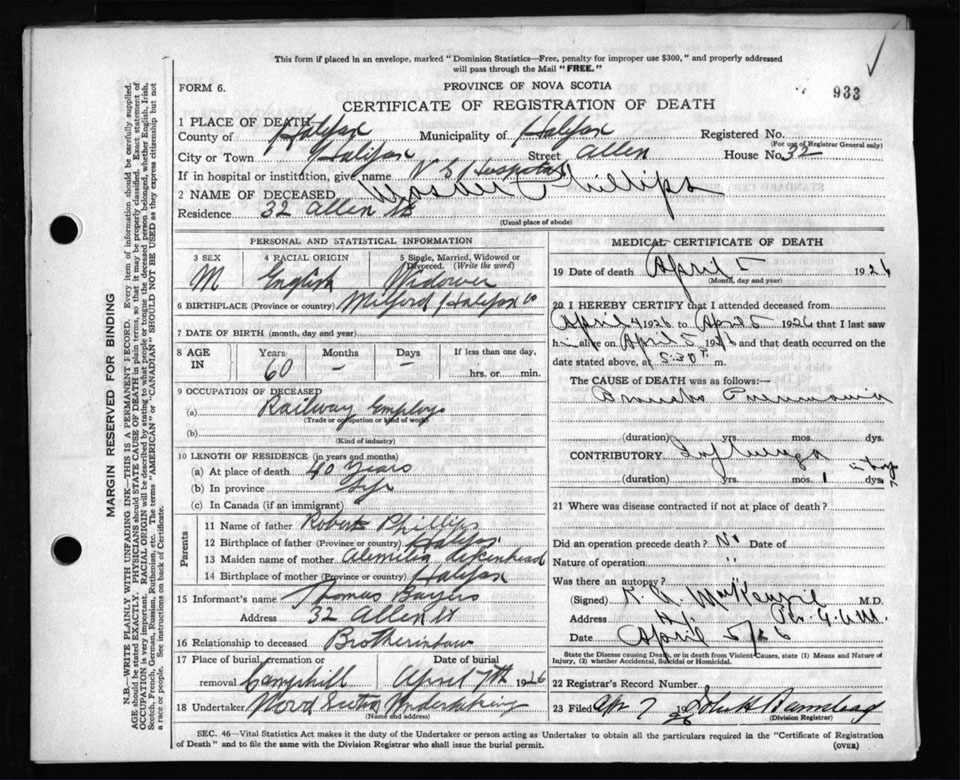 This form if placed in an envelope, marked "Dominion Statistics—Free, penalty for improper use $300," and properly addressed
will pass through the Mail "FREE."
933
FORM 6.
PROVINCE OF NOVA SCOTIA
CERTIFICATE OF REGISTRATION OF DEATH
1 PLACE OF DEATH
County of Halifax Municipality of Halifax Registered No.
(For use of Registrar General only)
City or Town Halifax Street Allen House No. 32
If in hospital or institution, give name N S Hospital
2 NAME OF DECEASED Phillips
Residence 32 Allen St
(Usual place of abode)
PERSONAL AND STATISTICAL INFORMATION
3 SEX 4 RACIAL ORIGIN 5 Single, Married, Widowed or Divorced. (Write the word)
M English Widower
6 BIRTHPLACE (Province or country) Milford Halifax Co
7 DATE OF BIRTH (month, day and year)
8 AGE IN Years Months Days If less than one day,
60 – – hrs. or min.
9 OCCUPATION OF DECEASED
(a) Railway Employe
(Trade or occupation or kind of work)
(b)
(Kind of industry)
10 LENGTH OF RESIDENCE (in years and months)
(a) At place of death 40 Years
(b) In province Life
(c) In Canada (if an immigrant)
Parents
11 Name of father Robert Phillips
12 Birthplace of father (Province or country) Halifax
13 Maiden name of mother
14 Birthplace of mother (Province or country) Halifax
15 Informant's name Thomas Bayers
Address 32 Allen St
16 Relationship to deceased Brotherinlaw
17 Place of burial, cremation or removal Date of burial
Camphill April 7th 1926
18 Undertaker Nova Scotia Undertaking
(Name and address)
MEDICAL CERTIFICATE OF DEATH
19 Date of death April 5 1926
(Month, day and year)
20 I HEREBY CERTIFY that I attended deceased from
April 4 1926 to April 5 1926 that I last saw
him alive on April 5 1926 and that death occurred on the
date stated above, at 5:30 P m.
The CAUSE OF DEATH was as follows:—
Broncho Pneumonia
(duration) yrs. mos. dys.
CONTRIBUTORY Influenza
(duration) yrs. mos. 1 dys.
21 Where was disease contracted if not at place of death?
Did an operation precede death? No Date of
Nature of operation "
Was there an autopsy?
(Signed) MacKenzie M.D.
Address
Date April 5/26
State the Disease causing Death, or in death from Violent Causes, state (1) Means and Nature of
Injury, (2) whether Accidental, Suicidal or Homicidal.
22 Registrar's Record Number
23 Filed Apr 7 1926
(Division Registrar)
SEC. 46—Vital Statistics Act makes it the duty of the Undertaker or person acting as Undertaker to obtain all the particulars required in the "Certificate of Registration
of Death" and to file the same with the Division Registrar who shall issue the burial permit.
(OVER)
MARGIN RESERVED FOR BINDING
N.B.—WRITE PLAINLY WITH UNFADING INK—THIS IS A PERMANENT RECORD. Every item of information should be carefully supplied.
AGE should be stated EXACTLY. PHYSICIANS should STATE CAUSE OF DEATH in plain terms, so that it may be properly classified. Exact statement of
OCCUPATION is very important. RACIAL ORIGIN will be described by stating to what people or tongue the deceased person belonged, whether English, Irish,
Scotch, French, German, Russian, Ruthenian, etc. The terms "AMERICAN" or "CANADIAN" SHOULD NOT BE USED as they express citizenship but not
a race or people. See instructions on back of Certificate.